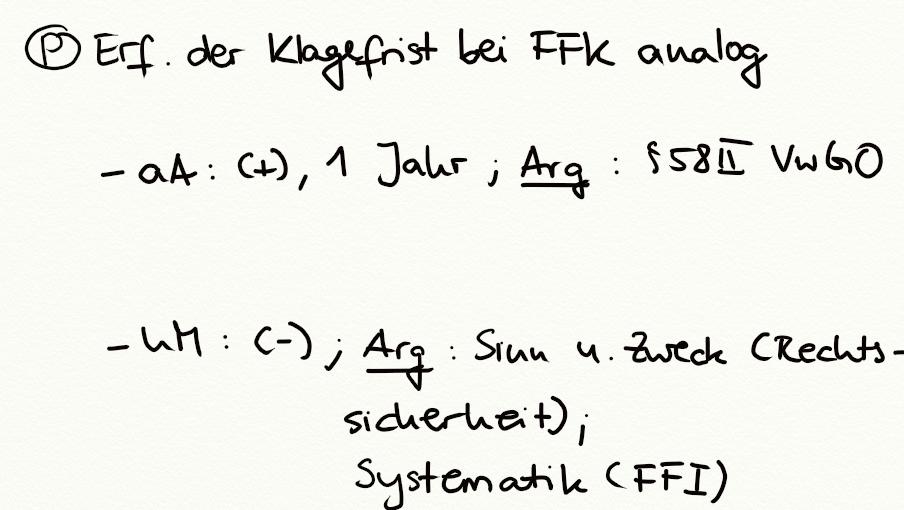 Ⓟ Erf. der Klagefrist bei FFK analog
- aA: (+), 1 Jahr ; Arg : §58 II VwGO
- hM : (-) ; Arg : Sinn u. Zweck (Rechts-
sicherheit) ;
Systematik (FFI)